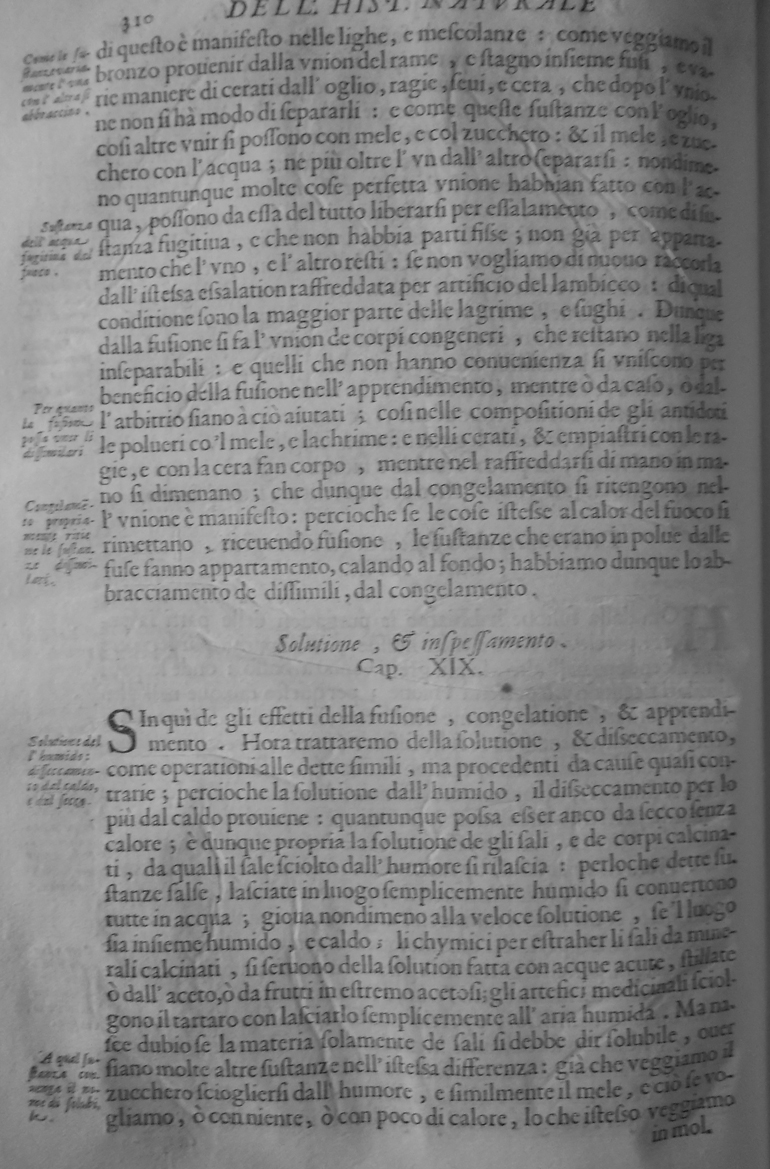 310
DELL' HIST. NATVRALE
di questo è manifesto nelle lighe, e mescolanze : come veggiamo il
bronzo prouenir dalla vnion del rame, e stagno insieme fusi, e va-
rie maniere di cerati dall' oglio, ragie, seui, e cera, che dopo l' vnio-
ne non si hà modo di separarli : e come queste sustanze con l'oglio,
così altre vnir si possono con mele, e col zucchero : & il mele, e zuc-
chero con l'acqua ; ne più oltre l' vn dall' altro separarsi : nondime-
no quantunque molte cose perfetta vnione habbian fatto con l'ac-
qua, possono da essa del tutto liberarsi per essalamento, come di su-
stanza fugitiua, e che non habbia parti fisse ; non già per apparta-
mento che l' vno, e l' altro resti : se non vogliamo di nuouo raccorla
dall' istessa essalation raffreddata per artificio del lambicco : di qual
conditione sono la maggior parte delle lagrime, e sughi. Dunque
dalla fusione si fa l' vnion de corpi congeneri, che restano nella liga
inseparabili : e quelli che non hanno conuenienza si vniscono per
beneficio della fusione nell' apprendimento, mentre ò da caso, ò dal-
l'arbitrio siano à ciò aiutati ; così nelle compositioni de gli antidoti
le polueri co 'l mele, e lachrime : e nelli cerati, & empiastri con le ra-
gie, e con la cera fan corpo, mentre nel raffreddarsi di mano in ma-
no si dimenano ; che dunque dal congelamento si ritengono nel-
l' vnione è manifesto : percioche se le cose istesse al calor del fuoco si
rimettano, riceuendo fusione, le sustanze che erano in polue dalle
fuse fanno appartamento, calando al fondo ; habbiamo dunque lo ab-
bracciamento de dissimili, dal congelamento.
Come le su-
stanze varia-
mente l' una
con l' altra si
abbraccino.
Sustanza
dell' acqua
fugitiua dal
fuoco.
Per quanto
la fusione
possa vnir li
dissimilari
Congelamē-
to propria-
mente ritie
ne le sustan.
ze dissimi-
lari.
Solutione, & inspessamento.
Cap. XIX.
SIn quì de gli effetti della fusione, congelatione, & apprendi-
mento. Hora trattaremo della solutione, & disseccamento,
come operationi alle dette simili, ma procedenti da cause quasi con-
trarie ; percioche la solutione dall' humido, il disseccamento per lo
più dal caldo prouiene : quantunque possa esser anco da secco senza
calore ; è dunque propria la solutione de gli sali, e de corpi calcina-
ti, da quali il sale sciolto dall' humore si rilascia : perloche dette su-
stanze salse, lasciate in luogo semplicemente humido si conuertono
tutte in acqua ; gioua nondimeno alla veloce solutione, se 'l luogo
sia insieme humido, e caldo ; li chymici per estraher li sali da mine-
rali calcinati, si seruono della solution fatta con acque acute, stillate
ò dall' aceto, ò da frutti in estremo acetosi ; gli artefici medicinali sciol-
gono il tartaro con lasciarlo semplicemente all' aria humida. Ma na-
sce dubio se la materia solamente de sali si debbe dir solubile, ouer
siano molte altre sustanze nell' istessa differenza : già che veggiamo il
zucchero sciogliersi dall' humore, e similmente il mele, e ciò se vo-
gliamo, ò con niente, ò con poco di calore, lo che istesso veggiamo
in mol.
Solutione del
l' humido:
disseccamen-
to del caldo,
e del secco.
A qual su-
stanza con-
uenga il no-
me di solubi,
le.